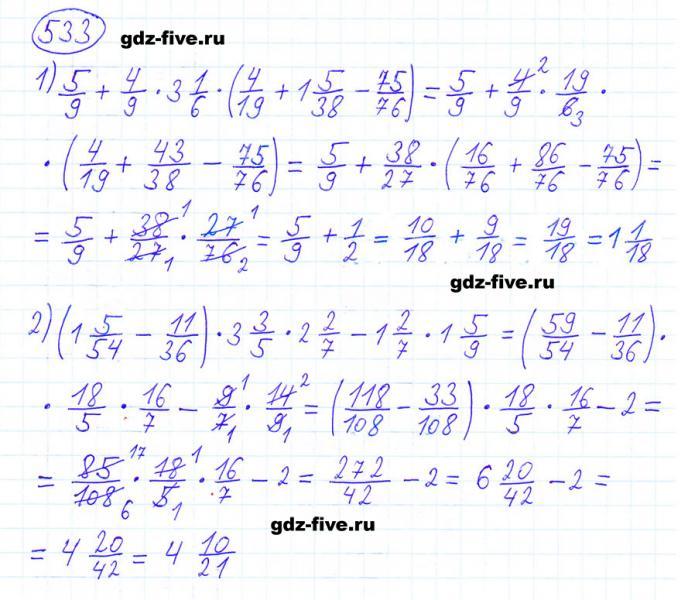 533
gdz-five.ru
1) 5/9 + 4/9 · 3 1/6 · (4/19 + 1 5/38 − 75/76) = 5/9 + 4/9 2 · 19/6 3 ·
· (4/19 + 43/38 − 75/76) = 5/9 + 38/27 · (16/76 + 86/76 − 75/76) =
= 5/9 + 38/27 1 1 · 27/76 1 2 = 5/9 + 1/2 = 10/18 + 9/18 = 19/18 = 1 1/18
gdz-five.ru
2) (1 5/54 − 11/36) · 3 3/5 · 2 2/7 − 1 2/7 · 1 5/9 = (59/54 − 11/36) ·
· 18/5 · 16/7 − 9/7 1 1 · 14/9 2 1 = (118/108 − 33/108) · 18/5 · 16/7 − 2 =
= 85/108 17 6 · 18/5 1 1 · 16/7 − 2 = 272/42 − 2 = 6 20/42 − 2 =
gdz-five.ru
= 4 20/42 = 4 10/21